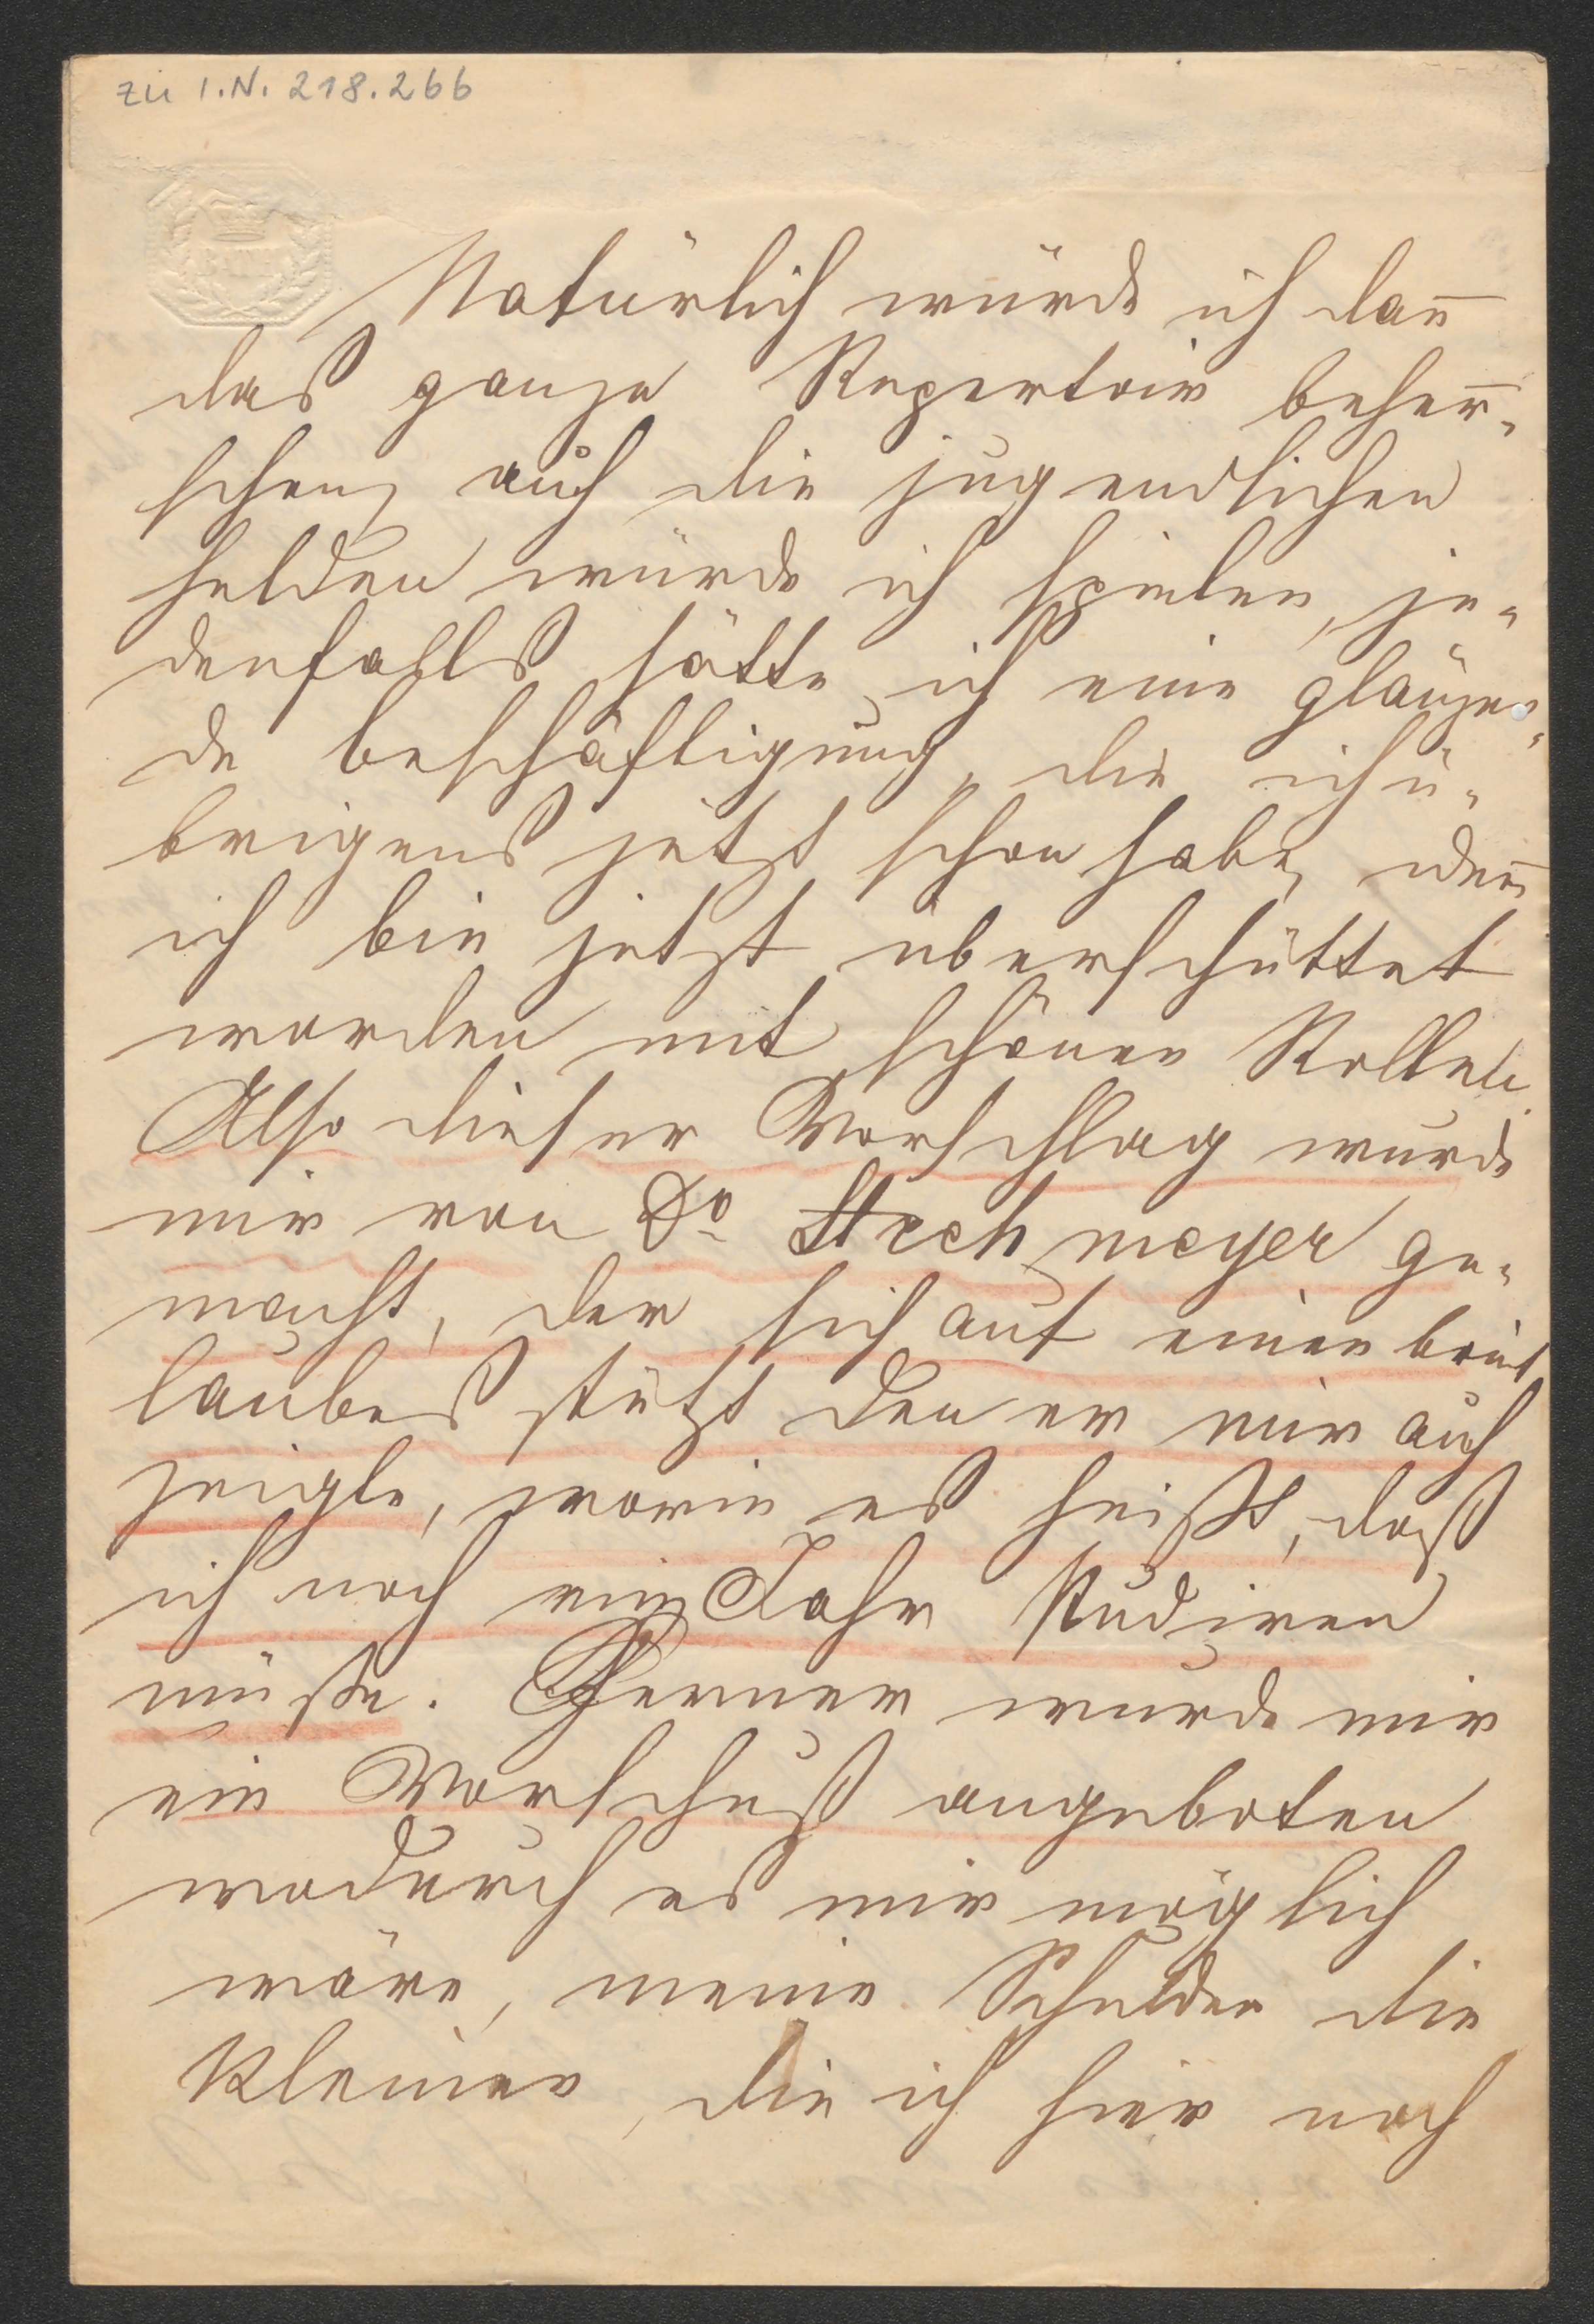 zu I.N. 218.266
Natürlich würde ich dan̅
das ganze Repertoir beher̅-
schen, auch die jugendlichen
Helden würde ich spielen, je-
denfalls hätte ich eine glänzen-
de Beschäftigung, die ich ü-
brigens jetzt schon habe, den̅
ich bin jetzt überschüttet
worden mit schönen Rollen.
Also dieser Vorschlag wurde
mir von Dr Stechmeyer ge-
macht, der sich auf einen Brief
Laubes stützt den er mir auch
zeigte, worin es heißt, daß
ich noch ein Jahr studiren
müße. Ferner wurde mir
ein Vorschuß angeboten
wodurch es mir möglich
wäre, meine Schulden die
Kleinen, die ich hier noch